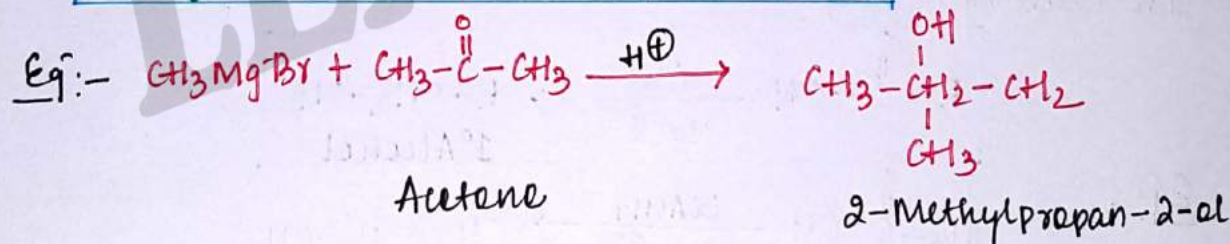 O
OH
Eg:- CH3MgBr + CH3-C-CH3 H⊕ → CH3-CH2-CH2
CH3
Acetone
2-Methylpropan-2-ol